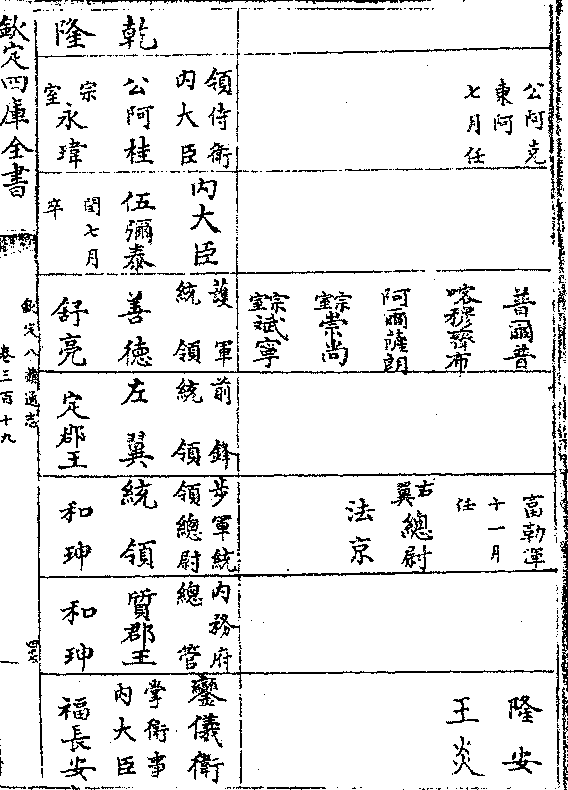 公阿克
東阿
七月任
普爾普
喀穆齊布
阿爾薩朗
宗室崇尚
宗室斌寧
富勒渾
十一月
任
右翼總尉
法京
隆安
王炎
乾隆
領侍衛
內大臣
公阿桂
宗室永瑋
內大臣
伍彌泰
閏七月
卒
護軍
統領
善德
舒亮
前鋒
統領
左翼
定郡王
步軍統
領總尉
統領
和珅
內務府
總管
質郡王
和珅
鑾儀衛
掌衛事
內大臣
福長安
欽定四庫全書
欽定八旗通志
卷三百十九